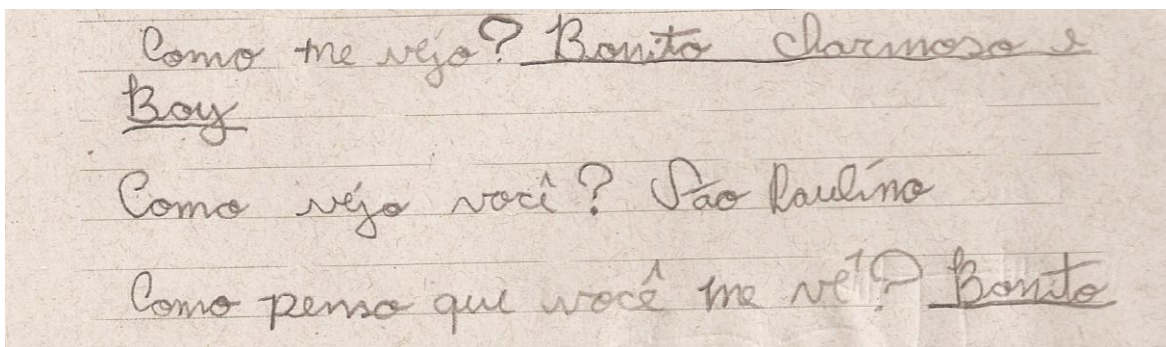 Como me vejo? Bonito charmoso e
Boy
Como vejo você? São Paulino
Como penso que você me vê? Bonito